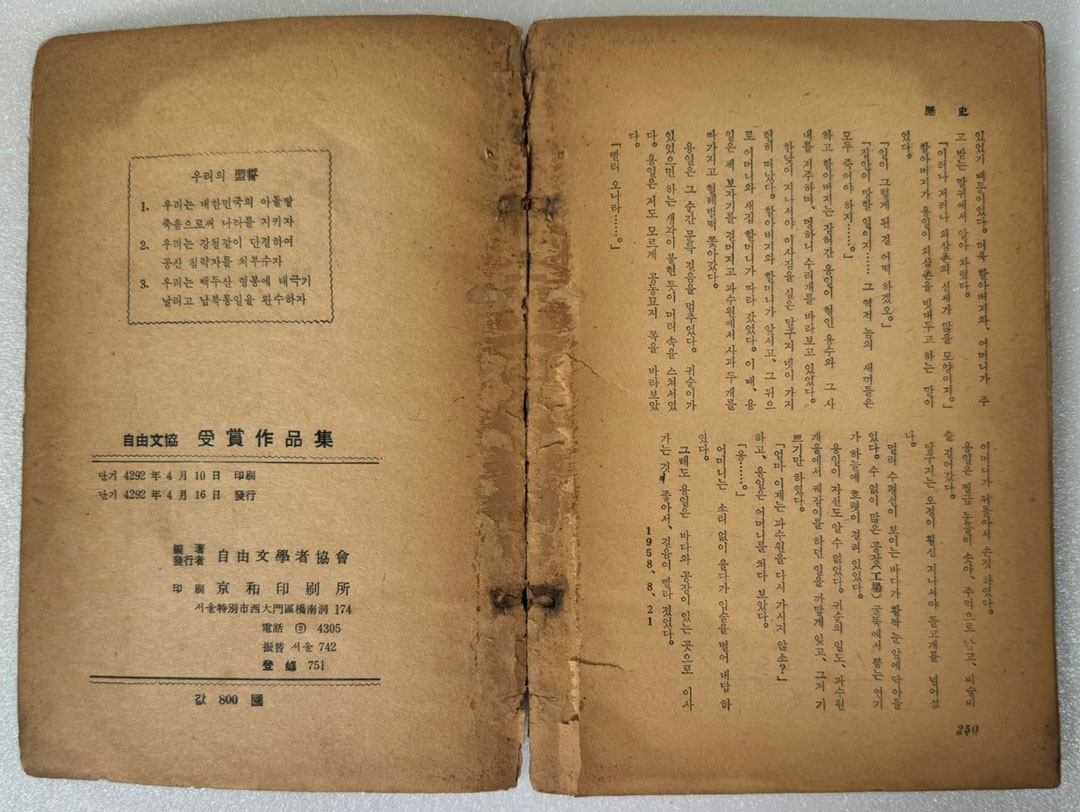 歷 史
있었기 때문이었다。 더욱 할아버지와, 어머니가 주
고 받는 말귀에서 알아 차렸다。
「이러나 저러나 외삼촌의 신세가 많을 모양이지。」
할아버지가 용일이 외삼촌을 빗대두고 하는 말이
였다。
「일이 그렇게 된 걸 어떡 하겠오。」
「집안이 망할 일이지…… 그 역적 놈의 새끼들은
모두 죽어야 하지……。」
하고 할아버지는 잡혀간 용일이 형인 용수와 그 사
내를 저주하며, 멍하니 수리개를 바라보고 있었다。
한낮이 지나서야 이사짐을 실은 달구지 넷이 가지
런히 떠났다。 할아버지와 할머니가 앞서고, 그 뒤으
로 어머니와 새집 할머니가 따라 갔었다。 이 때, 용
일은 책 보자기를 걸머지고 과수원에서 사과 두개를
따가지고 헐레벌떡 쫓아갔다。
용일은 그 순간 문득 걸음을 멈추었다。 귀순이가
있었으면 하는 생각이 불현 듯이 머리 속을 스쳐서였
다。 용일은 저도 모르게 공동묘지 쪽을 바라보았
다。
「빨리 오나라……。」
어머니가 뒤돌아서 손짓 하였다。
용일은 찔금 눈물이 솟아, 주먹으로 고, 비슬비
슬 걸어갔다。
달구지는 오정이 훨신 지나서야 돌고개를 넘어섰
다。
멀리 수평선이 보이는 바다가 활짝 눈 앞에 닥아들
었다。 수 없이 많은 공장(工場) 굴뚝에서 뿜는 연기
가 하늘에 흐렷이 걸려 있었다。
용일이 자신도 알 수 없었다。 귀순의 일도, 과수원
개울에서 궤장이를 하던 일을 까맣게 잊고, 그저 기
쁘기만 하였다。
「엄마 이제는 과수원을 다시 가시지 않소?」
하고, 용일은 어머니를 처다 보았다。
「응……。」
어머니는 소리 없이 울다가 입술을 떨어 대답 하
였다。
그때도 용일은 바다와 공장이 있는 곳으로 이사
가는 것이 좋아서, 걸음이 빨라 졌었다。
1958、8、21
250
우리의 盟誓
1. 우리는 대한민국의 아들딸
죽음으로써 나라를 지키자
2. 우리는 강철같이 단결하여
공산 침략자를 처부수자
3. 우리는 백두산 영봉에 태극기
날리고 남북통일을 완수하자
自由文協 受賞作品集
단기 4292 年 4 月 10 日 印刷
단기 4292 年 4 月 16 日 發行
編著
發行者 自由文學者協會
印刷 京和印刷所
서울特別市西大門區橋南洞 174
電話 ③ 4305
振替 서울 742
登錄 751
값 800 圜